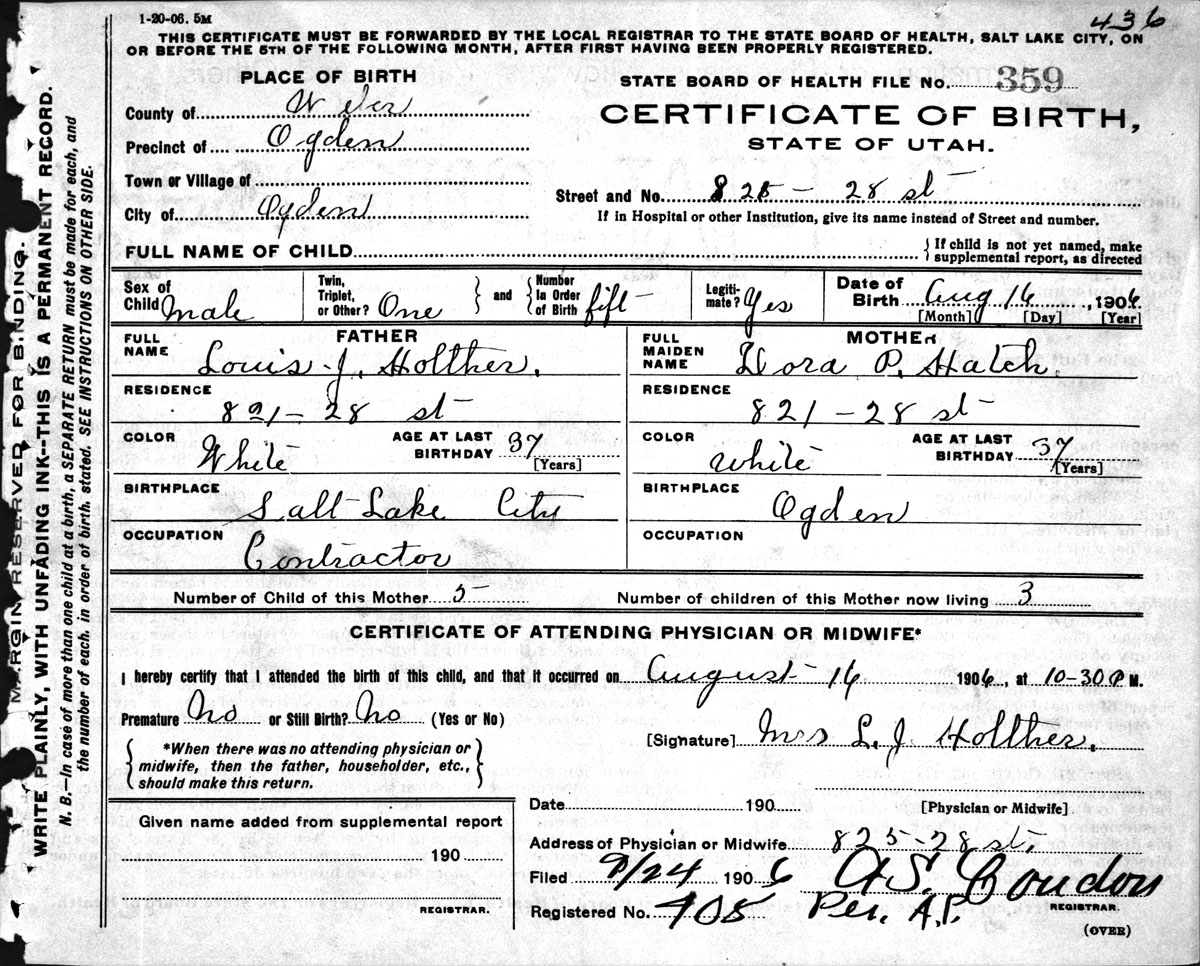 1-20-06. 5M
436
THIS CERTIFICATE MUST BE FORWARDED BY THE LOCAL REGISTRAR TO THE STATE BOARD OF HEALTH, SALT LAKE CITY, ON
OR BEFORE THE 5TH OF THE FOLLOWING MONTH, AFTER FIRST HAVING BEEN PROPERLY REGISTERED.
MARGIN RESERVED FOR BINDING.
WRITE PLAINLY, WITH UNFADING INK--THIS IS A PERMANENT RECORD.
N. B.—In case of more than one child at a birth, a SEPARATE RETURN must be made for each, and
the number of each, in order of birth, stated. SEE INSTRUCTIONS ON OTHER SIDE.
PLACE OF BIRTH
County of Weber
Precinct of Ogden
Town or Village of
City of Ogden
STATE BOARD OF HEALTH FILE No. 359
CERTIFICATE OF BIRTH,
STATE OF UTAH.
Street and No. 825 - 28 st
If in Hospital or other Institution, give its name instead of Street and number.
FULL NAME OF CHILD
If child is not yet named, make
supplemental report, as directed
Sex of Child Male
Twin, Triplet, or Other? One
and Number In Order of Birth fift
Legitimate? Yes
Date of Birth Aug 16, 1906
[Month] [Day] [Year]
FATHER
FULL NAME Louis J. Holther.
RESIDENCE 821 - 28 st
COLOR White AGE AT LAST BIRTHDAY 37 [Years]
BIRTHPLACE Salt Lake City
OCCUPATION Contractor
MOTHER
FULL MAIDEN NAME Dora P. Hatch.
RESIDENCE 821 - 28 st
COLOR white AGE AT LAST BIRTHDAY 37 [Years]
BIRTHPLACE Ogden
OCCUPATION
Number of Child of this Mother 5 Number of children of this Mother now living 3
CERTIFICATE OF ATTENDING PHYSICIAN OR MIDWIFE*
I hereby certify that I attended the birth of this child, and that it occurred on August 16 1906, at 10-30 P M.
Premature No or Still Birth? No (Yes or No)
*When there was no attending physician or
midwife, then the father, householder, etc.,
should make this return.
[Signature] Mrs L. J. Holther.
Date 190 [Physician or Midwife]
Given name added from supplemental report
190
REGISTRAR.
Address of Physician or Midwife 825-28 st.
Filed 9/24 1906 A.S. Condon
REGISTRAR.
Registered No. 705 Per. A.P.
(OVER)